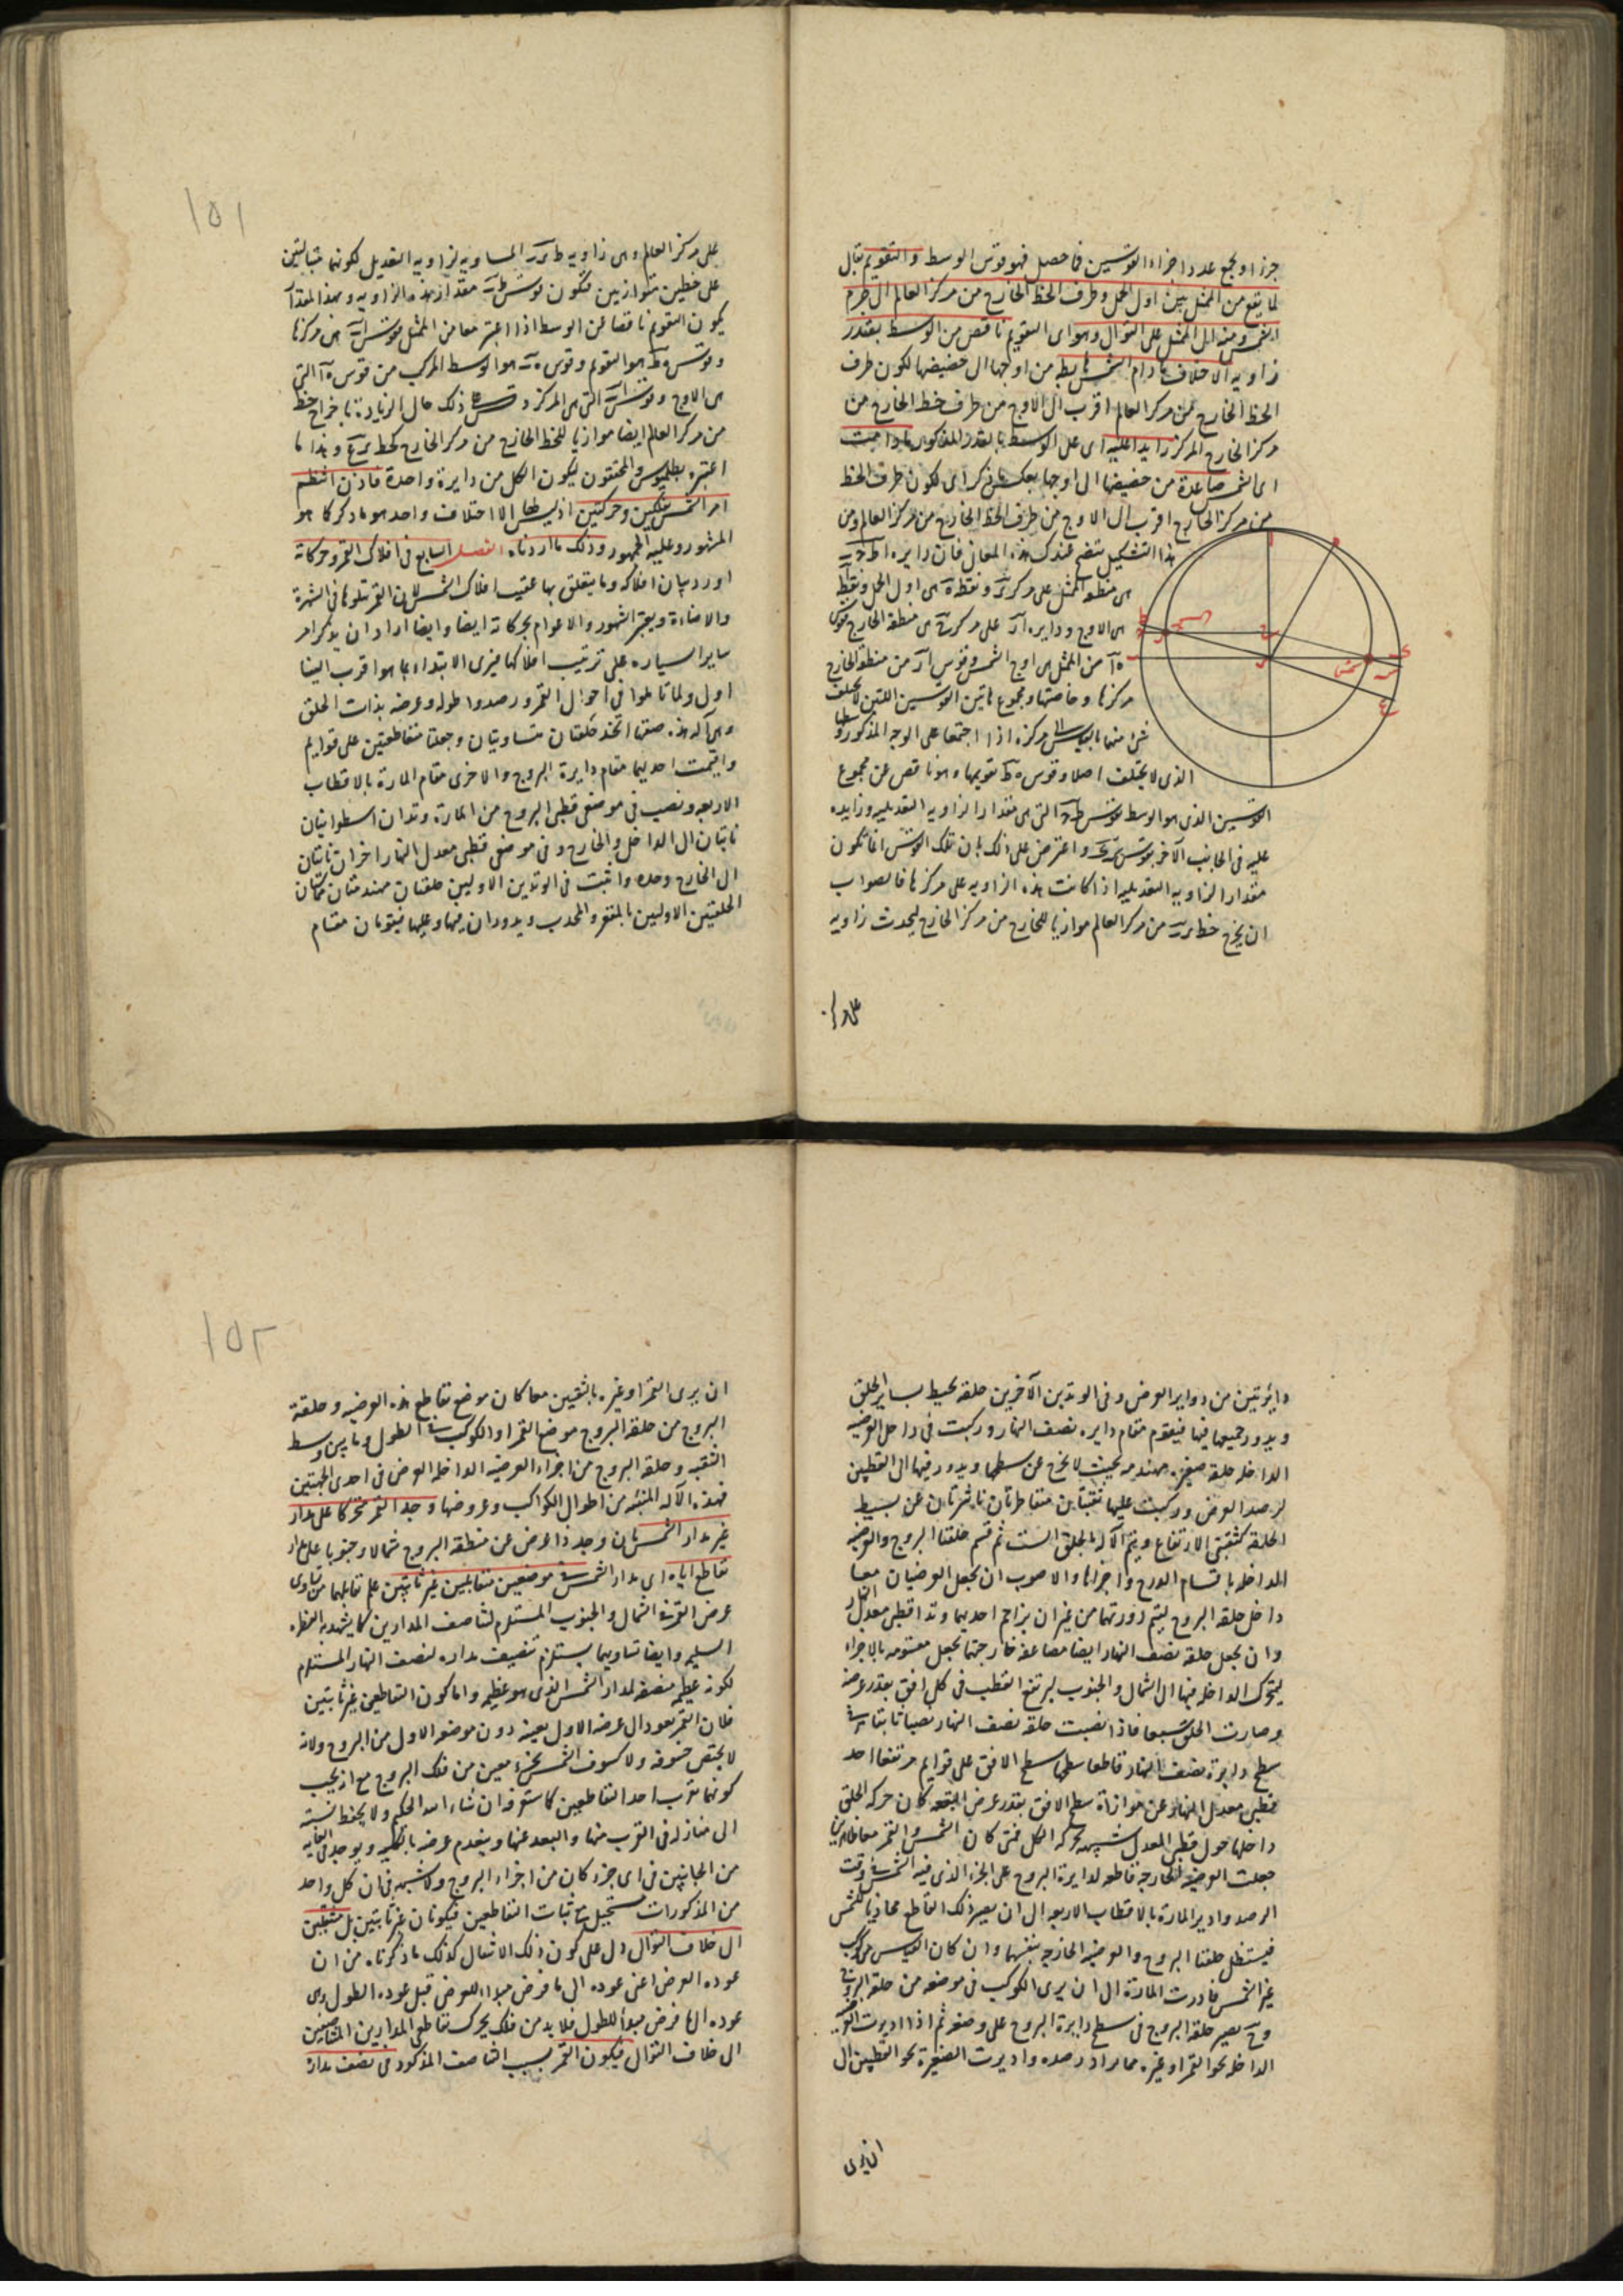 جزء او يجمع عدد اجزاء القوسين فما حصل فهو قوس الوسط والتقويم يقال
لما يقع من الممثل بين اول الحمل وطرف الخط الخارج من مركز العالم الى جرم
الشمس ومنه الى الممثل على التوالى وهو اى التقويم ناقص من الوسط بقدر
زاوية الاختلاف ما دام الشمس هابطة من اوجها الى حضيضها لكون طرف
الخط الخارج من مركز العالم اقرب الى الاوج من طرف خط الخارج من
مركز الخارج المركز زايد اعليه اى على الوسط بالقدر المذكور ما دامت
اى الشمس صاعدة من حضيضها الى اوجها بعكس ما ذكر اى لكون طرف الخط
من مركز الخارج اقرب الى الاوج من طرف الخط الخارج من مركز العالم ومن
هذا التشكيل يتضح عندك هذه المعانى فان دايره
هى منطقه الممثل على مركز ونقطة هى اول الحمل ونقطة
هى الاوج ودايره على مركز هى منطقة الخارج قوس
من الممثل هى اوج الشمس وقوس من منطقة الخارج
مركزها وخاصتها ومجموع هاتين القوسين اللتين لا يختلف
شئ منهما بالقياس الى مركزه اذا اجتمعا على الوجه المذكور وسطها
الذى لا يختلف اصلا وقوس تقويمها وهو ناقص عن مجموع
القوسين الذى هو الوسط بقوس التى هى مقدار الزاويه التعديليه وزايده
عليه فى الجانب الآخر بقوس واعترض على ذلك بان تلك القوس انما تكون
مقدار الزاويه التعديليه اذا كانت هذه الزاويه على مركزها فالصواب
ان يخرج خط من مركز العالم موازيا للخارج من مركز الخارج ليحدث زاويه
على مركز
١٥١
على مركز العالم وهى زاويه المساويه لزاويه التعديل لكونهما متبادلتين
على خطين متوازيين فتكون قوس مقدار هذه الزاويه وبهذا المقدار
يكون التقويم ناقصا عن الوسط اذا اعتبر معا من الممثل فقوس هى مركزها
وقوس هو التقويم وقوس هو الوسط المركب من قوس التى
هى الاوج وقوس التى هى المركز وقس على ذلك حال الزيادة باخراج خط
من مركز العالم ايضا موازيا للخط الخارج من مركز الخارج كخط وهذا ما
اعتبره بطلميوس والمحققون ليكون الكل من دايرة واحدة فاذن انتظم
امر الشمس بفلكين وحركتين اذ ليس لها الا اختلاف واحد هو ما ذكر كما هو
المشهور وعليه الجمهور وذلك ما اردناه الفصل السابع فى افلاك القمر وحركاته
اورد بيان افلاكه وما يتعلق بها عقيب افلاك الشمس لان القمر يتلوها فى الشهرة
والاضاءة ويعتبر الشهور والاعوام بحركاته ايضا وايضا اراد ان يذكر امر
ساير السياره على ترتيب افلاكها فيرى الابتداء بما هو اقرب الينا
اول ولما تاملوا فى احوال القمر ورصدوا طوله وعرضه بذات الحلق
وهى آلة هذه صفتها اتخذ حلقتان متساويتان وجعلتا متقاطعتين على قوايم
واقيمت احديهما مقام دايرة البروج والاخرى مقام المارة بالاقطاب
الاربعه ونصب فى موضعى قطبى البروج من المارة وتدان اسطوانيتان
ناتيان الى الداخل والخارج وفى موضعى قطبى معدل النهار اخران ناتيان
الى الخارج وحده واثبت فى الوتدين الاولين حلقتان مهندمتان تماسان
الحلقتين الاوليين بالمقعر والمحدب ويدوران فيهما وعليهما فيقومان مقام
دايرتين من دواير العرض وفى الوتدين الآخرين حلقه يحيط بساير الحلق
ويدور جميعها فيها فيقوم مقام دايره نصف النهار وركبت فى داخل العرضيه
الداخله حلقه صغيره مهندمه بحيث لا يخرج عن سطحها ويدور فيها الى القطبين
لرصد العرض وركبت عليها ثقبتان متقاطرتان ناشزتان عن بسيط
الحلقه كثقبتى الارتفاع ويتم الآله بالحلق الست ثم قسم حلقتا البروج والعرضيه
الداخله باقسام الدرج واجزائها والاصوب ان يجعل العرضيان معا
داخل حلقه البروج ليتم دورتهما من غير ان يزاحم احديهما وتدا قطبى معدل النهار
وان يجعل حلقه نصف النهار ايضا مضاعفه خارجتها يجعل مقسومه بالاجزاء
ليتحرك الداخله فيها الى الشمال والجنوب ليرتفع القطب فى كل افق بقدر عرضه
وصارت الحلق سبعا فاذا نصبت حلقه نصف النهار نصبا ثابتا فى
سطح دايرة نصف النهار قاطعا سطحها سطح الافق على قوايم مرتفعا احد
قطبى معدل النهار عن موازاة سطح الافق بقدر عرض البقعه كان حركه الحلق
داخلها حول قطبى المعدل شبيهه بحركه الكل فمتى كان الشمس والقمر معا ظاهرين
جعلت العرضيه الخارجه قاطعه لدايرة البروج على الجزء الذى فيه الشمس فى وقت
الرصد وادير المارة بالاقطاب الاربعه الى ان يصير ذلك التقاطع محاذيا للشمس
فيستظل حلقتا البروج والعرضيه الخارجه بنفسهما وان كان القياس من كوكب
غير الشمس فادرت المارة الى ان يرى الكوكب فى موضعه من حلقه البروج
وح يصير حلقة البروج فى سطح دايرة البروج على وضعه ثم اذا اديرت العرضيه
الداخله نحو القمر او غيره مما يراد رصده واديرت الصغيرة نحو القطبين الى
ان يرى
١٥٢
ان يرى القمر او غيره بالثقبين معا كان موضع تقاطع هذه العرضيه وحلقة
البروج من حلقه البروج موضع القمر او الكوكب فى الطول وما بين وسط
الثقبه وحلقه البروج من اجزاء العرضيه الداخله العرض فى احدى الجهتين
فهذه الآله المنبئه من اطوال الكواكب وعروضها وجد القمر متحركا على مدار
غير مدار الشمس بان وجد ذا عرض عن منطقه البروج شمالا وجنوبا على مدار
تقاطع اياه اى مدار الشمس فى موضعين متقابلين غير ثابتين علم تقابلهما من تساوى
عرض القمر فى الشمال والجنوب المستلزم لتناصف المدارين كما يشهد به الفطره
السليمه وايضا تساويهما يستلزم تنصيف مداره لنصف النهار المستلزم
لكونه عظيمه منصفه لمدار الشمس الذى هو عظيمه واما كون التقاطعين غير ثابتين
فلان القمر يعود الى عرضه الاول بعينه دون موضعه الاول من البروج ولانه
لا يختص خسوفه ولا كسوف الشمس بجزء معين من فلك البروج مع انه يجب
كونهما بقرب احد التقاطعين كما ستعرفه ان شاء الله الحكيم ولا يحفظ نسبته
الى منازله فى القرب منها والبعد عنها وينعدم عرضه بالكليه ويوجد فى الغايه
من الجانبين فى اى جزء كان من اجزاء البروج ولا شبهه فى ان كل واحد
من المذكورات يستحيل مع ثبات التقاطعين فيكونان غير ثابتين بل منتقلين
الى خلاف التوالى دل على كون ذلك الانتقال كذلك ما ذكرناه من ان
عوده العرض اعنى عوده الى ما فرض مبدأ للعرض قبل عوده الطول اى
عوده الى ما فرض مبدأ للطول فلا بد من فلك يحرك تقاطعى المدارين المتناصفين
الى خلاف التوالى فيكون القمر بسبب التناصف المذكور فى نصف مداره